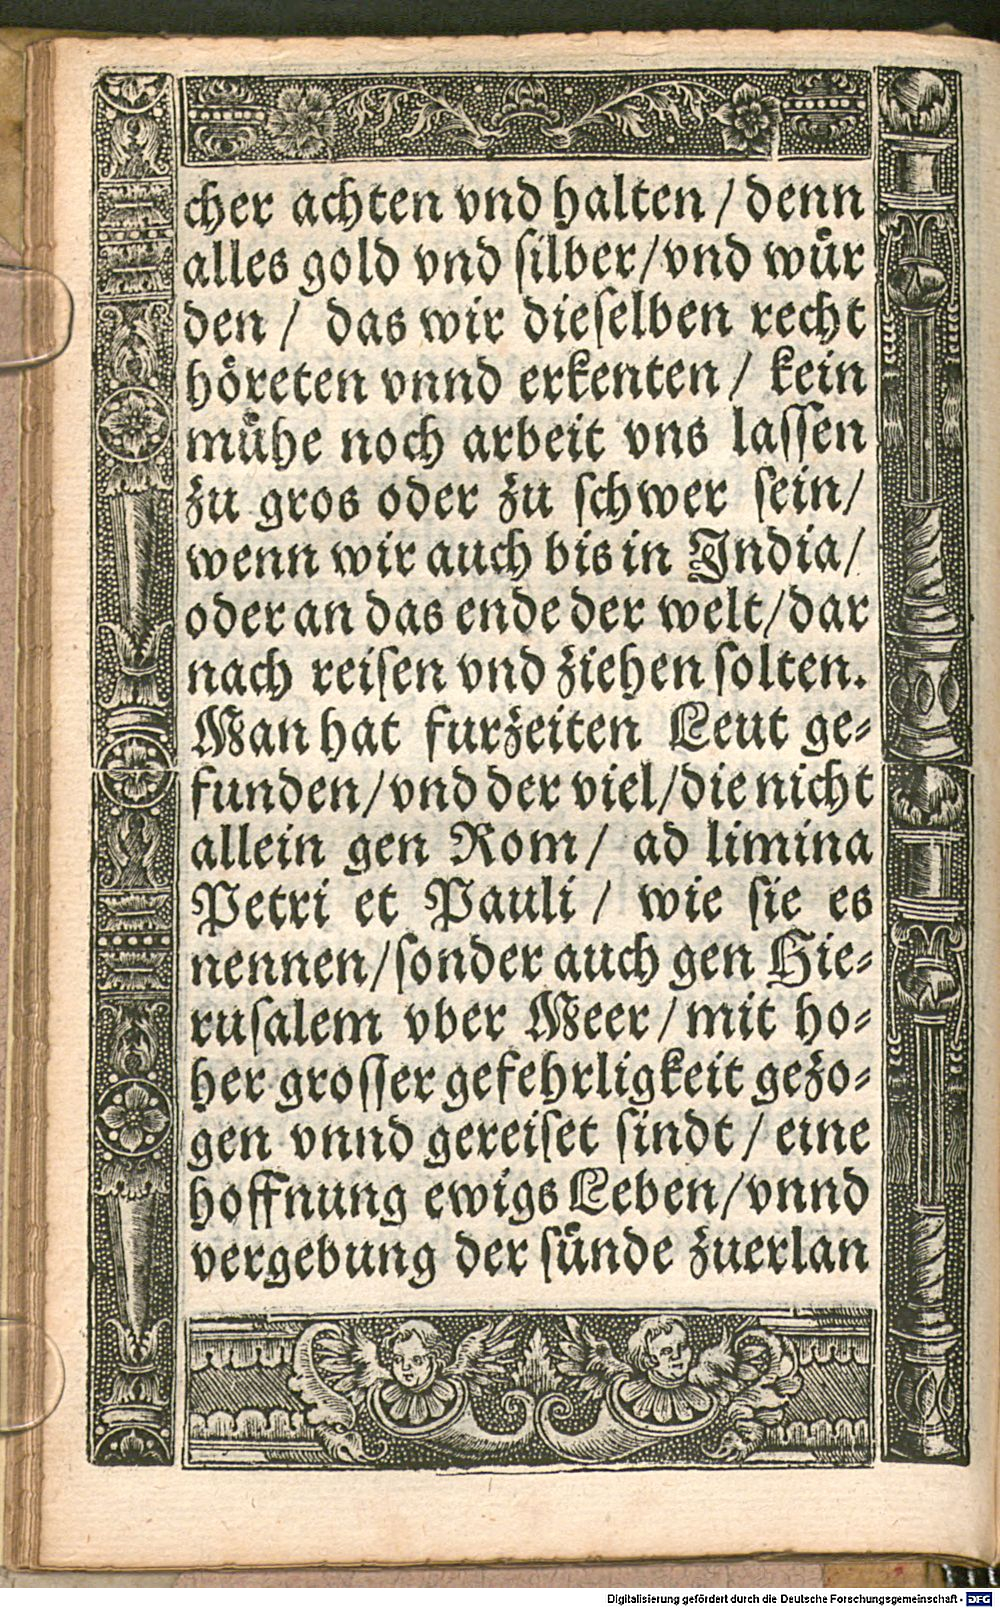 cher achten vnd halten / denn
alles gold vnd ſilber / vnd wuͤr
den / das wir dieſelben recht
hoͤreten vnnd erkenten / kein
muͤhe noch arbeit vns laſſen
zu gros oder zu ſchwer ſein /
wenn wir auch bis in India /
oder an das ende der welt / dar
nach reiſen vnd ziehen ſolten.
Man hat furzeiten Leut ge⸗
funden / vnd der viel / die nicht
allein gen Rom / ad limina
Petri et Pauli / wie ſie es
nennen / ſonder auch gen Hie⸗
ruſalem vber Meer / mit ho⸗
her groſſer gefehrligkeit gezo⸗
gen vnnd gereiſet ſindt / eine
hoffnung ewigs Leben / vnnd
vergebung der ſuͤnde zuerlan
Digitalisierung gefördert durch die Deutsche Forschungsgemeinschaft - DFG